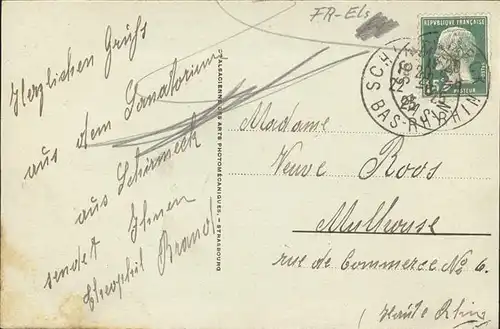 FR-Els
Herzlichen Gruß
aus dem Sanatorium
aus Schirmeck
sendet Ihnen
Brand
D'ALSACIENNE DES ARTS PHOTOMÉCANIQUES, - STRASBOURG
REPUBLIQUE FRANÇAISE
PASTEUR
BAS-RHIN
Madame
Veuve Roos
Mulhouse
rue de Commerce No 6.
(Haute Rhin)